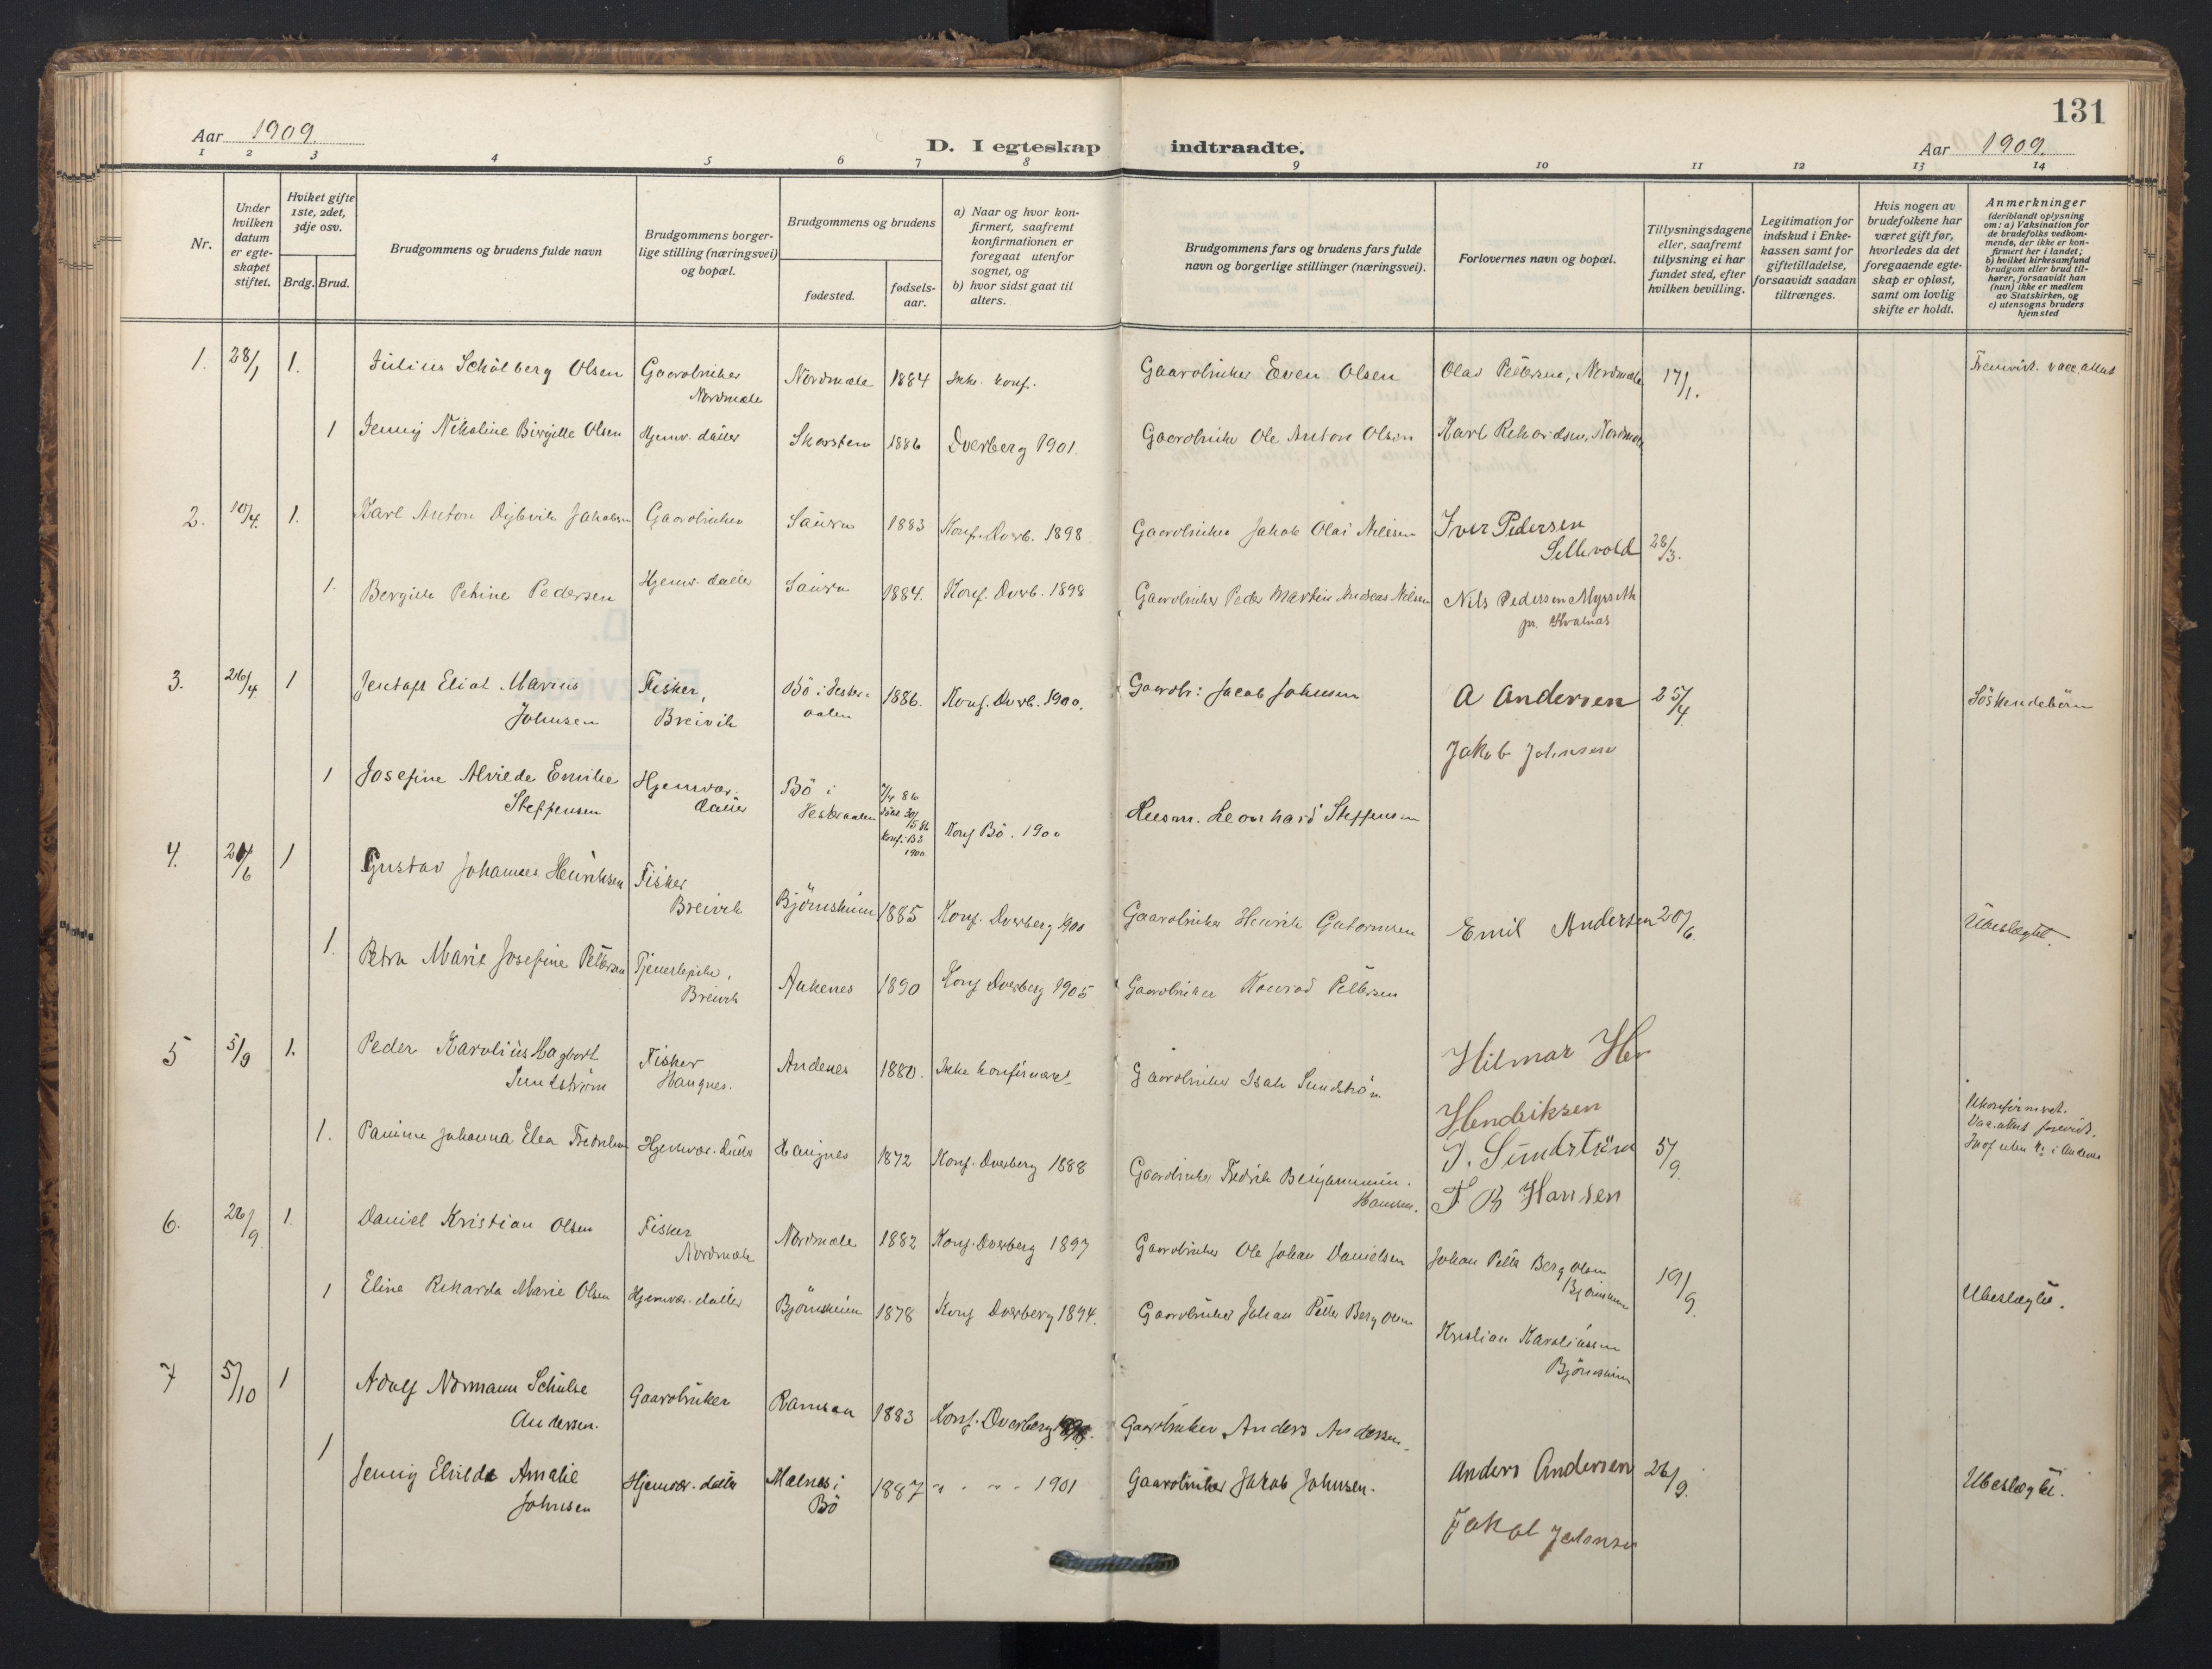 131
Aar 1909.
D. I egteskap indtraadte.
Aar 1909.
1 2 3 4 5 6 7 8 9 10 11 12 13 14
Nr.
Under hvilken datum er egte-skapet stiftet.
Hviket gifte 1ste, 2det, 3dje osv.
Brdg. Brud.
Brudgommens og brudens fulde navn
Brudgommens borger-lige stilling (næringsvei) og bopæl.
Brudgommens og brudens
fødested.
fødsels-aar.
a) Naar og hvor kon-firmert, saafremt konfirmationen er foregaat utenfor sognet, og
b) hvor sidst gaat til alters.
Brudgommens fars og brudens fars fulde navn og borgerlige stillinger (næringsvei).
Forlovernes navn og bopæl.
Tillysningsdagene eller, saafremt tillysning ei har fundet sted, efter hvilken bevilling.
Legitimation for indskud i Enke-kassen samt for giftetilladelse, forsaavidt saadan tiltrænges.
Hvis nogen av brudefolkene har været gift før, hvorledes da det foregaaende egte-skap er opløst, samt om lovlig skifte er holdt.
Anmerkninger (deriblandt oplysning om: a) Vaksination for de brudefolks vedkom-mende, der ikke er kon-firmert her i landet; b) hvilket kirkesamfund brudgom eller brud til-hører, forsaavidt han (hun) ikke er medlem av Statskirken, og c) utensogns bruders hjemsted
1. 28/1 1. Julius Schölberg Olsen Gaardbruker Nordmele Nordmele 1884 Ikke konf. Gaardbruker Even Olsen Olai Pettersen, Nordmele 17/1. Fremvist vacc.attest
1 Jenny Nikoline Birgitte Olsen Hjemv. datter Skarsten 1886 Dverberg 1901. Gaardbruker Ole Anton Olsen Karl Rikardsen, Nordmele
2. 10/4. 1. Karl Anton Dybvik Jakobsen Gaardbruker Saura 1883 Konf. Dverb. 1898 Gaardbruker Jakob Olai Nilsen Iver Pedersen Sellevold 28/3.
1. Bergitte Petine Pedersen Hjemv. datter Saura 1884. Konf. Dverb. 1898 Gaardbruker Peder Martin Andreas Nilsen Nils Pedersen Myrseth pr. Kvalnæs
3. 26/4 1 Jentoft Eliot Marius Johnsen Fisker, Breivik Bö i Vester-aalen 1886. Konf. Dverb. 1900. Gaardbr: Jacob Johnsen A Andersen 25/4. Söskendebörn
Jakob Johnsen
1 Josefine Alvilde Emilie Steffensen Hjemvær. datter Bö i Vesteraalen 7/4 86 döbt 30/5 86 konf. Bö 1900. Konf Bö. 1900 Husm. Leonhard Steffensen
4. 24/6 1 Gustav Johannes Henriksen Fisker Breivik Björnskinn 1885 Konf. Dverberg 1900 Gaardbruker Henrik Guttormsen Emil Andersen 20/6. Ubeslegtet.
1. Petra Marie Josefine Pettersen Tjenestepike, Breivik Aakenes 1890 Konf Dverberg 1905 Gaardbruker Konrad Pettersen
5 5/9 1. Peder Karolius Hagbart Sundström Fisker Haugnes. Andenes 1880. Ikke konfirmert Gaardbruker Isak Sundström Hilmar He Hendriksen
Ukonfirmert. Vac.attest forevist.
1. Pauline Johanna Elea Fredriksen Hjemvær. datter Haugnes 1872 Konf. Dverberg 1888 Gaardbruker Fredrik Benjammin. Hansen. I. Sundström F B Hansen 5/9.
6. 26/9. 1. Daniel Kristian Olsen Fisker Nordmele Nordmele 1882 Konf. Dverberg 1897 Gaardbruker Ole Johan Danielsen Johan Petter Berg Olsen Björnskinn 19/9. Ubeslegtet.
1 Eline Rikarda Marie Olsen Hjemvær. datter Björnskinn 1878 Konf Dverberg 1894. Gaardbruker Johan Petter Berg Olsen Kristian Karoliussen Björnskinn
7 5/10 1 Adolf Normann Schulse Andersen. Gaardbruker Ramsaa 1883 Konf. Dverberg Gaardbruker Anders Andersen. Anders Andersen 26/9. Ubeslegtet.
1 Jenny Elvilde Amalie Johnsen Hjemvær. datter Malnes i Bö 1887 " " " 1901 Gaardbruker Jakob Johnsen. Jakob Johnsen